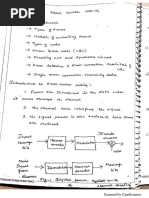 Error control coding
Introduction
→ Types of Errors
→ Methods of controlling Errors
→ Types of codes
→ Linear Block codes (LBC)
→ Encoding ckt and syndrome circuit
→ Error detection & Error correction capabilities
→ Single error correction hamming codes
Introduction to Error control coding:
1. Errors are introduced in the data when
it passes through the channel.
2. The channel noise interferes the signal
3. The signal power is also reduced, hence errors are
introduced.
Input
Message
bits
Channel
encoder
Modulator
Discrete
channel
Noise
Signal
from
channel
Demodulator
Channel
decoder
Message
bits
Fig.: Digital
Scanned by CamScanner